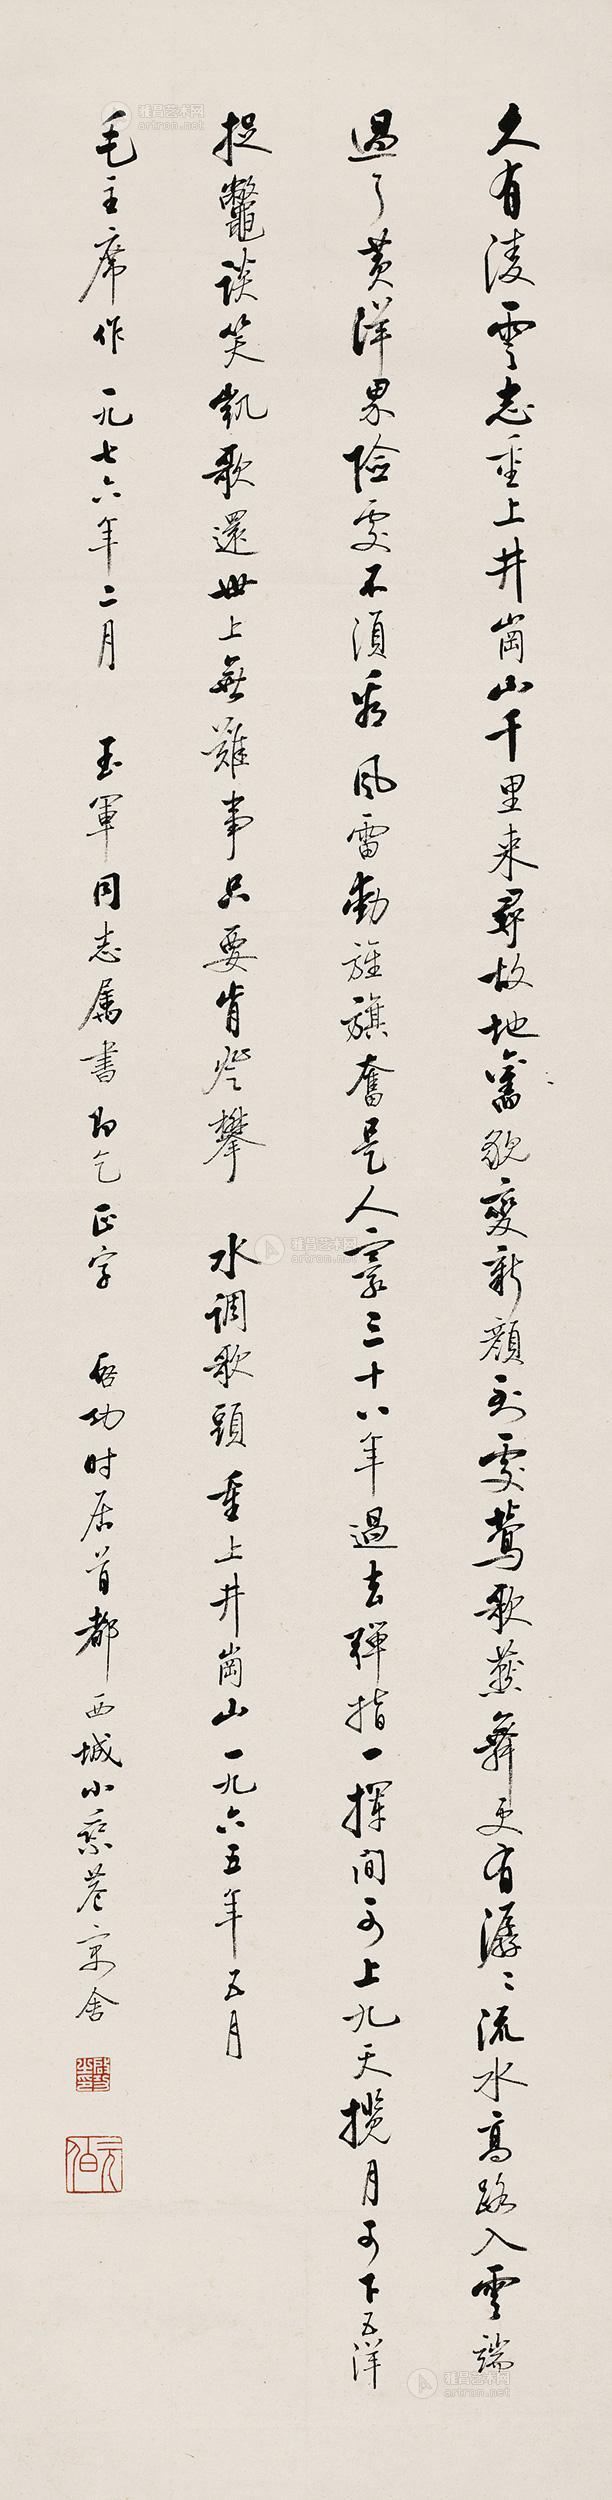 久有凌雲志重上井岡山千里来尋故地舊貌變新顔到處鶯歌燕舞更有潺〻流水高路入雲端
過了黄洋界險處不須看風雷動旌旗奮是人寰三十八年過去彈指一揮間可上九天攬月可下五洋
捉鼈談笑凱歌還世上無難事只要肯登攀 水調歌頭 重上井岡山 一九六五年五月
毛主席作 一九七六年二月 玉軍同志属書即乞正字 啓功时居首都西城小乘巷寓舍
啟功之印
元白
雅昌艺术网
artron.net
雅昌艺术网
artron.net
雅昌艺术网
artron.net